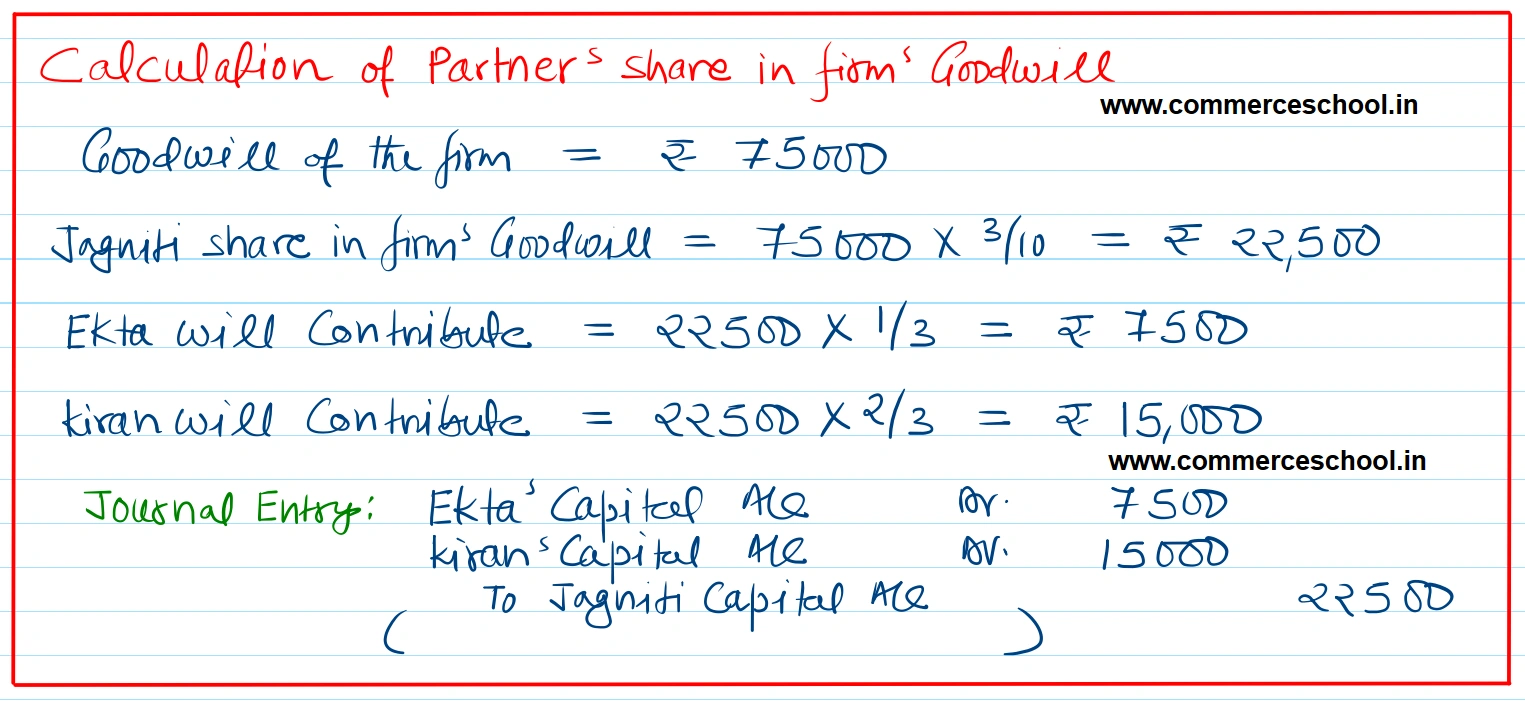 Calculation of Partner's share in firm's Goodwill
www.commerceschool.in
Goodwill of the firm = ₹ 75000
Jagniti share in firm's Goodwill = 75000 X 3/10 = ₹ 22,500
Ekta will Contribute = 22500 X 1/3 = ₹ 7500
kiran will Contribute = 22500 X 2/3 = ₹ 15,000
www.commerceschool.in
Journal Entry: Ekta's Capital A/c Dr. 7500
kiran's Capital A/c Dr. 15000
To Jagniti Capital A/c 22500
( )